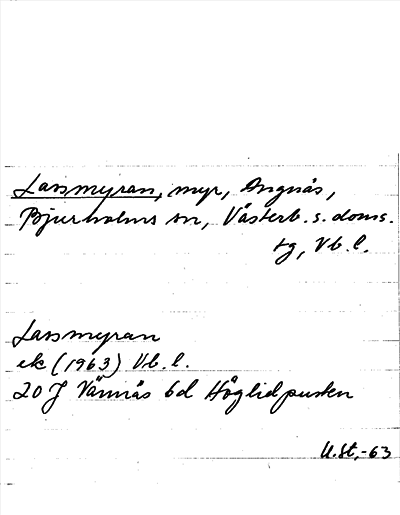 Lassmyran, myr, Angnäs,
Bjurholms sn, Västerb. s. doms.
tg, Vb. l.
Lassmyran
ek (1963) Vb. l.
20 J Vännäs 6d Höglidpusten
U.St,-63